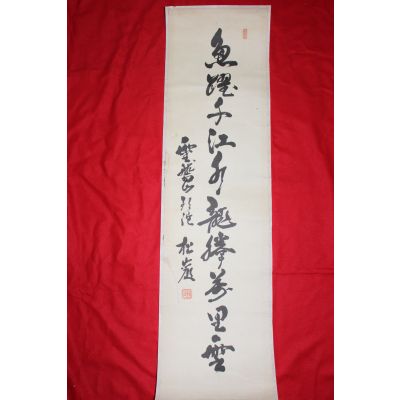 魚躍千江水龍騰萬里雲
松巖